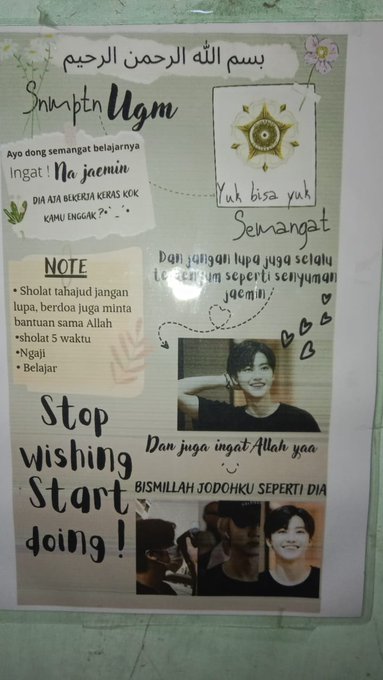 بسم الله الرحمن الرحيم
Snmptn Ugm
Ayo dong semangat belajarnya
Ingat ! Na jaemin
DIA AJA BEKERJA KERAS KOK
KAMU ENGGAK ?•`_´•
Yuk bisa yuk
Semangat
Dan jangan lupa juga selalu
tersenyum seperti senyuman
jaemin
NOTE
• Sholat tahajud jangan
lupa, berdoa juga minta
bantuan sama Allah
•sholat 5 waktu
•Ngaji
• Belajar
Stop
wishing
Start
doing !
Dan juga ingat Allah yaa
BISMILLAH JODOHKU SEPERTI DIA